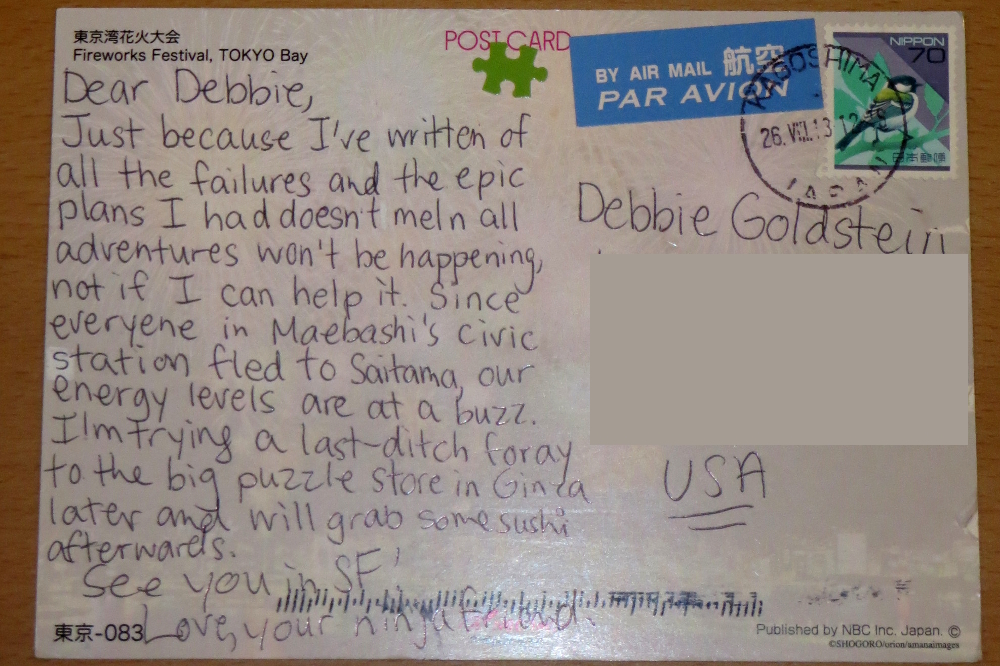 東京湾花火大会
Fireworks Festival, TOKYO Bay
POST CARD
BY AIR MAIL 航空
PAR AVION
NIPPON
70
日本郵便
KAGOSHIMA
26. VIII.13 12-18
JAPAN
Dear Debbie,
Just because I've written of
all the failures and the epic
plans I had doesn't meln all
adventures won't be happening,
not if I can help it. Since
everyene in Maebashi's civic
station fled to Saitama, our
energy levels are at a buzz.
I'm trying a last-ditch foray
to the big puzzle store in Ginza
later and will grab some sushi
afterwards.
See you in SF!
Love, your ninja friend.
Debbie Goldstein
USA
東京-083
Published by NBC Inc. Japan. ©
©SHOGORO/orion/amanaimages